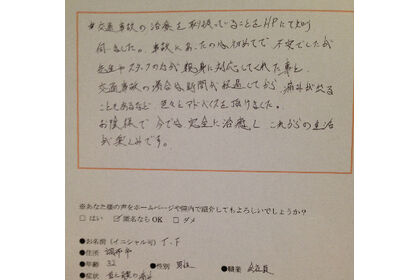 交通事故の治療を取扱っていることをHPにて知り
伺いました。事故にあったのは初めてで不安でしたが
先生やスタッフの方が親身に対応してくれた事と
交通事故の場合は時間が経過してから痛みが出る
こともあるなど色々とアドバイスを頂けました。
お陰様で今では完全に治癒し これからの生活
が楽しみです。
※あなた様の声をホームページや院内で紹介してもよろしいでしょうか？
□ はい ☑ 匿名なら OK □ ダメ
●お名前(イニシャル可) T.F
●住所 調布市
●年齢 32 ●性別 男性 ●職業 会社員
●症状